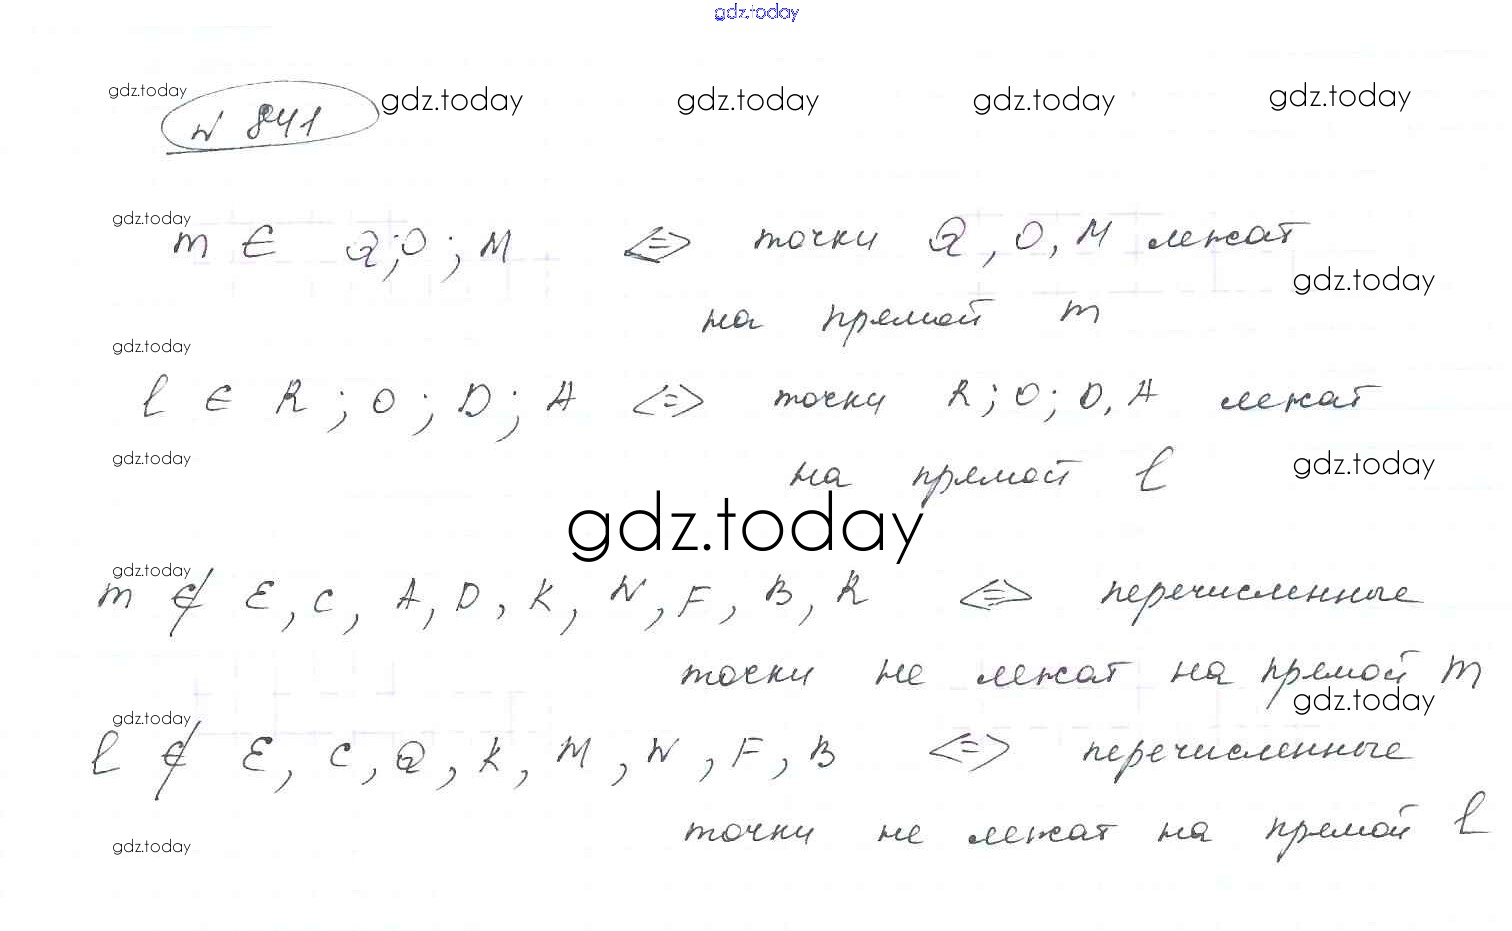 gdz.today
gdz.today gdz.today gdz.today gdz.today gdz.today
№ 841
gdz.today
m ∈ Q; O; M <=> точки Q, O, M лежат
gdz.today
на прямой m
gdz.today
l ∈ R; O; D; A <=> точки R; O; D, A лежат
gdz.today gdz.today
на прямой l
gdz.today
gdz.today
m ∉ E, C, A, D, K, N, F, B, R <=> перечисленные
точки не лежат на прямой m
gdz.today
gdz.today
l ∉ E, C, Q, K, M, N, F, B <=> перечисленные
точки не лежат на прямой l
gdz.today